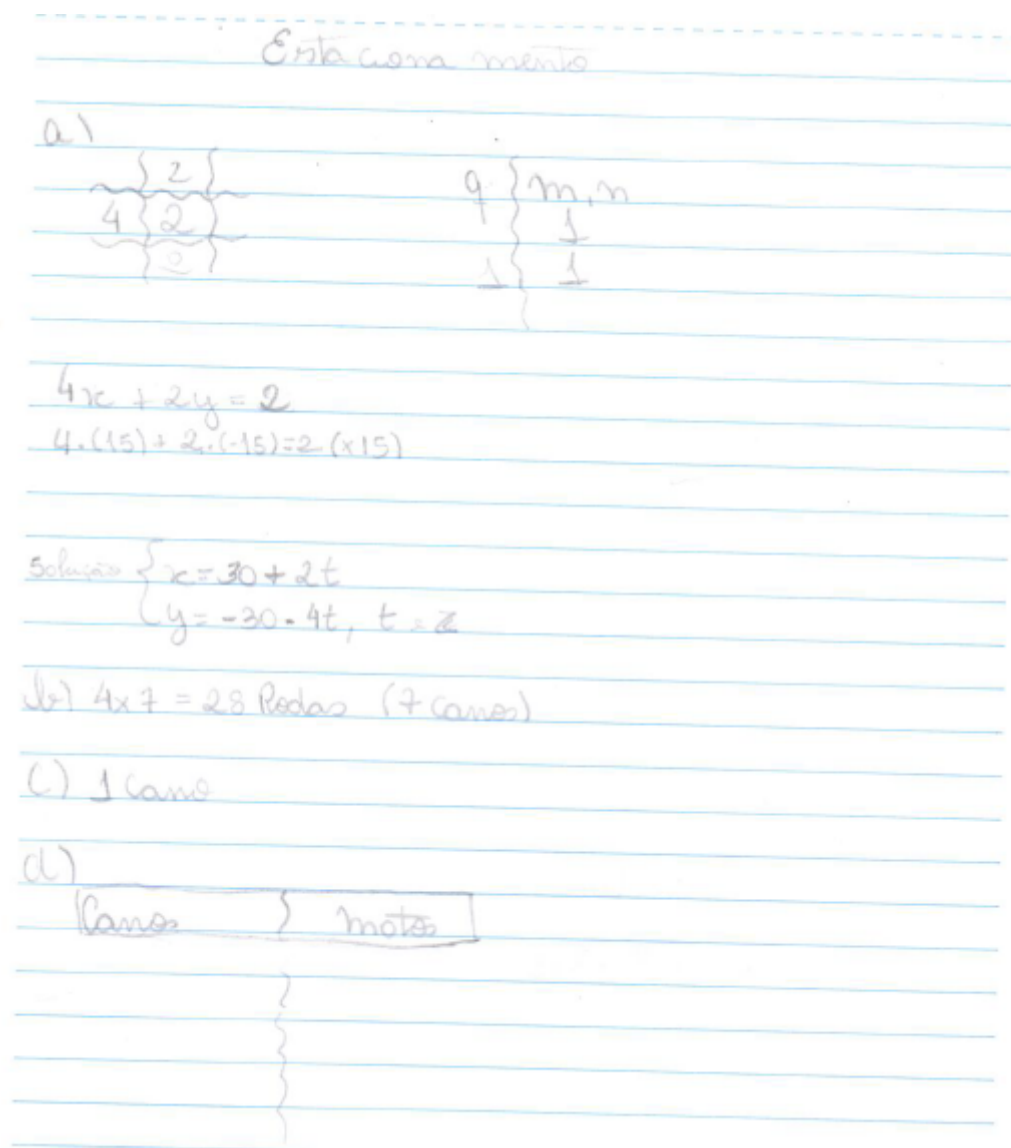 Estacionamento
a)
2
4 2
0
q m, n
1
1 1
4x + 2y = 2
4.(15) + 2.(-15) = 2 (x15)
Solução { x = 30 + 2t
y = -30 - 4t, t = Z
b) 4x7 = 28 Rodas (7 carros)
C) 1 Carro
d)
Carros motos